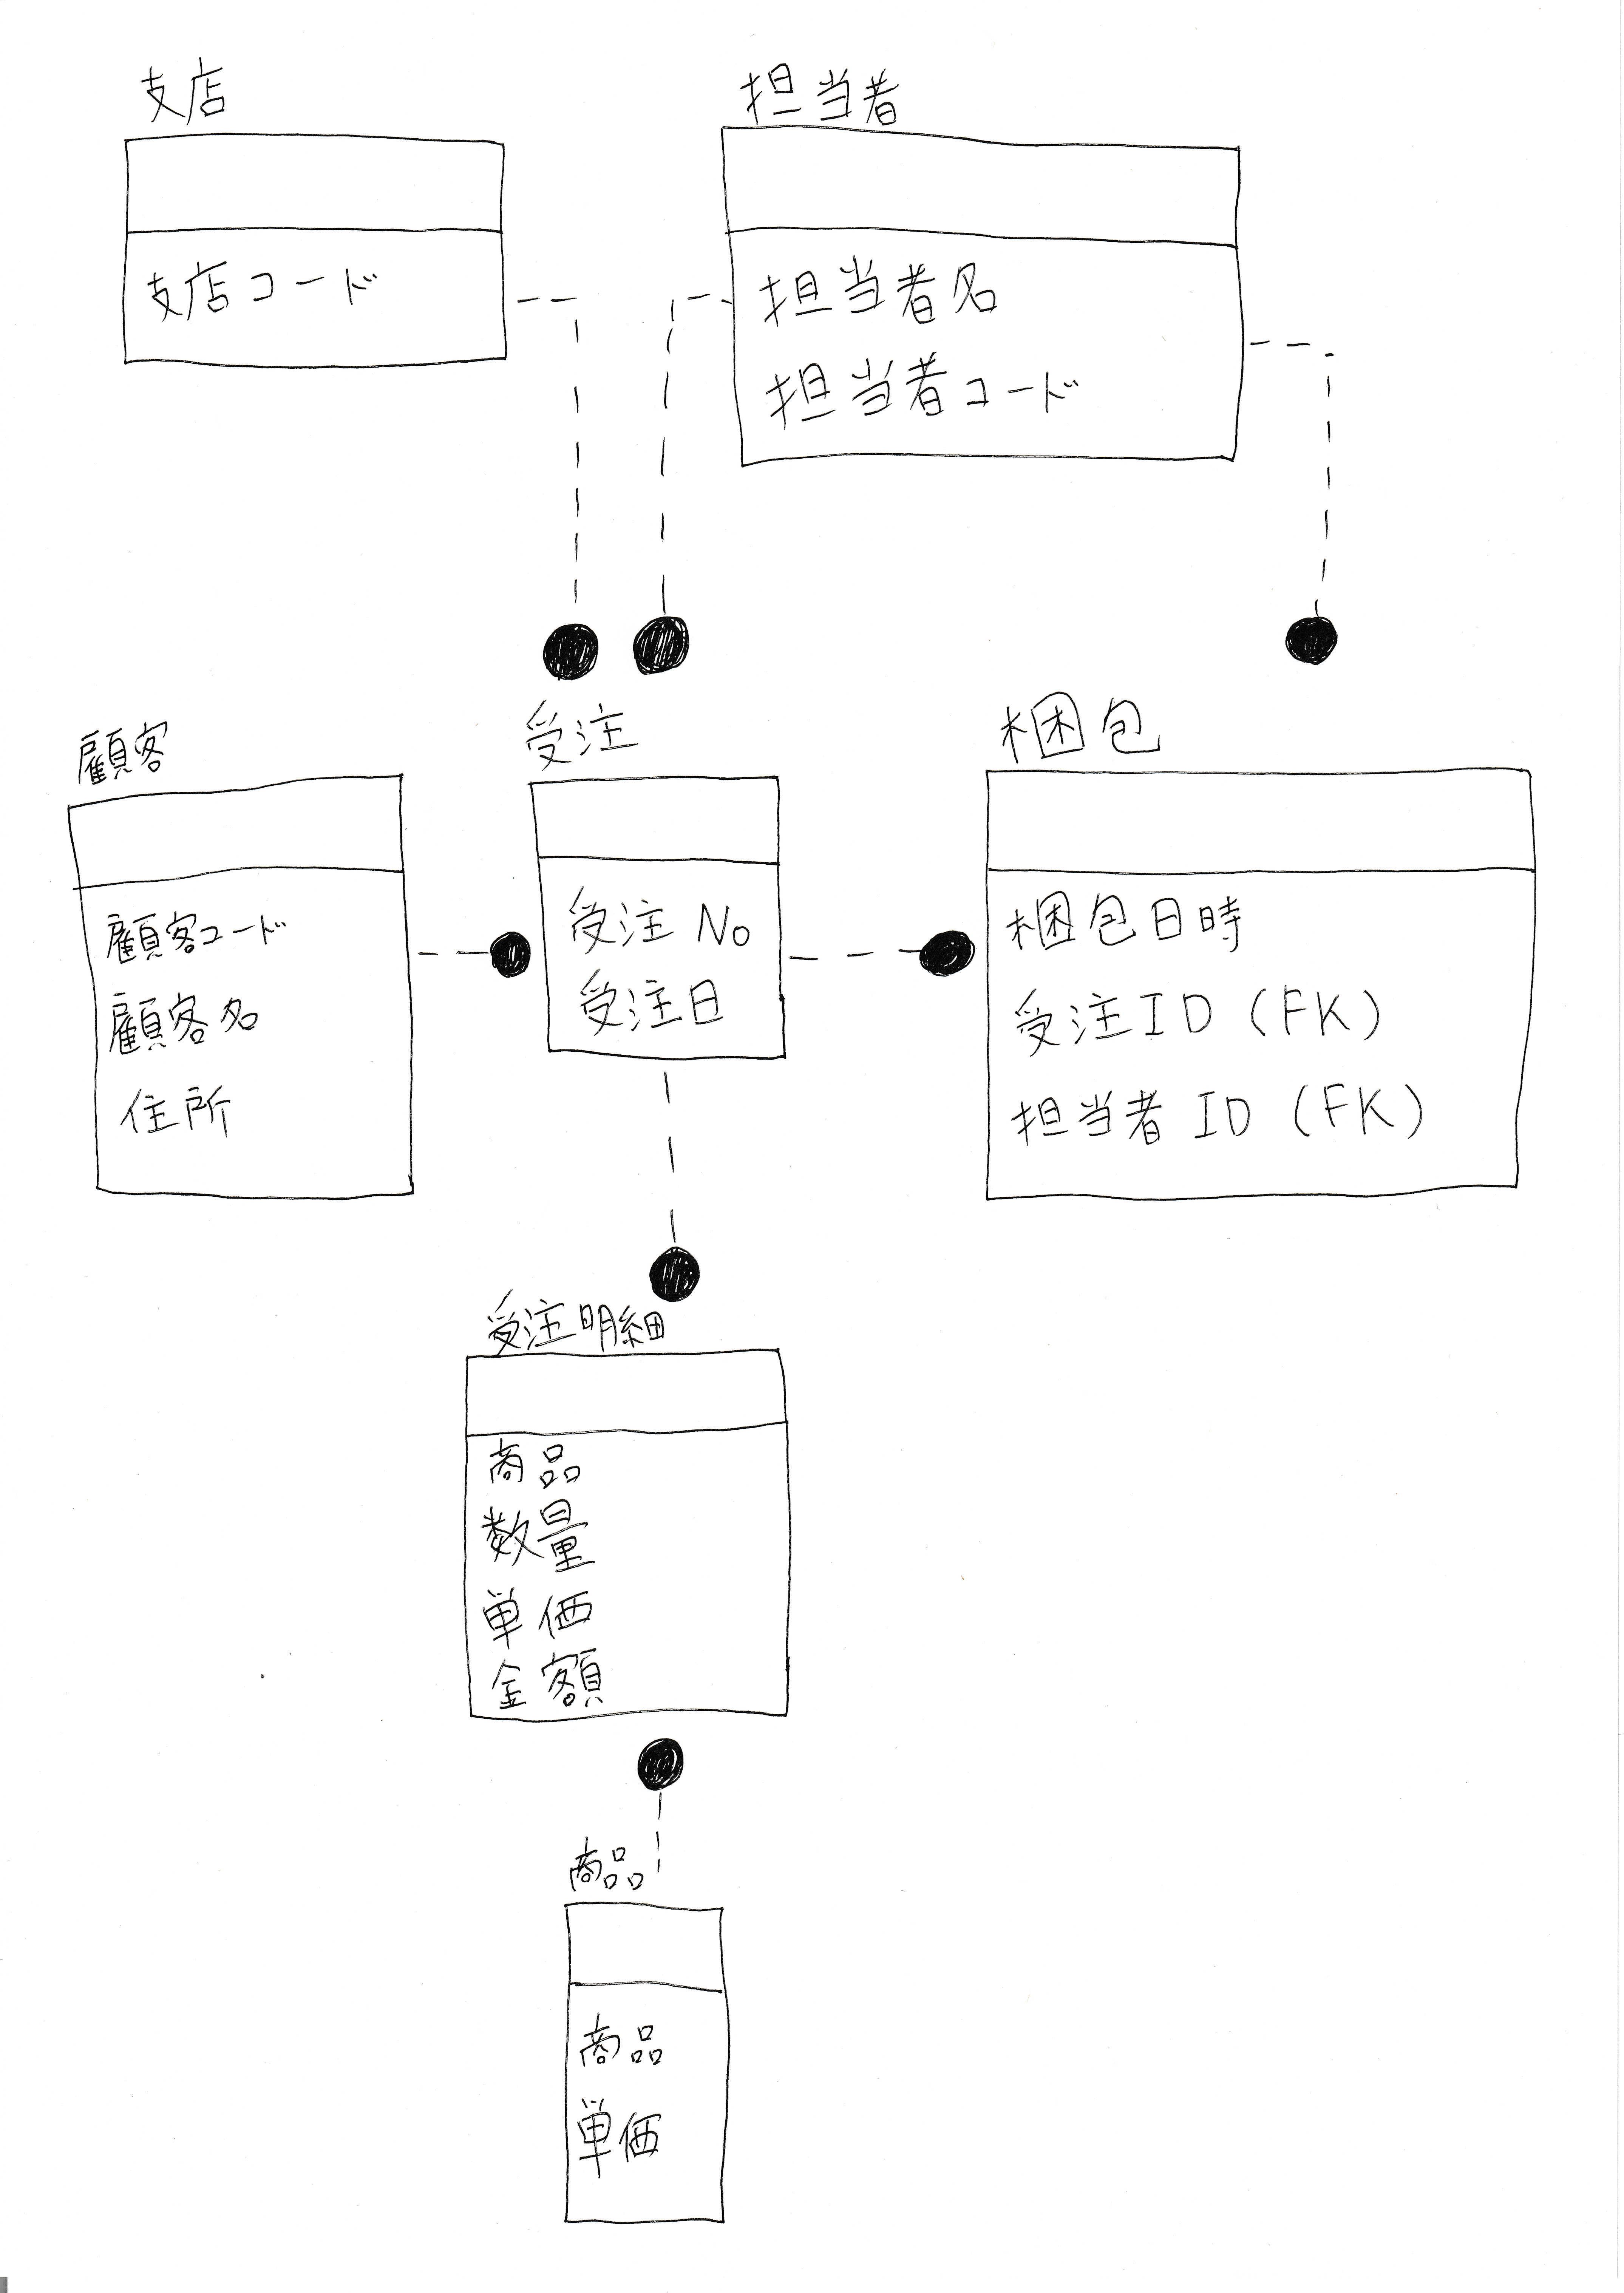 支店
支店コード
担当者
担当者名
担当者コード
顧客
顧客コード
顧客名
住所
受注
受注No
受注日
梱包
梱包日時
受注ID(FK)
担当者ID(FK)
受注明細
商品
数量
単価
金額
商品
商品
単価